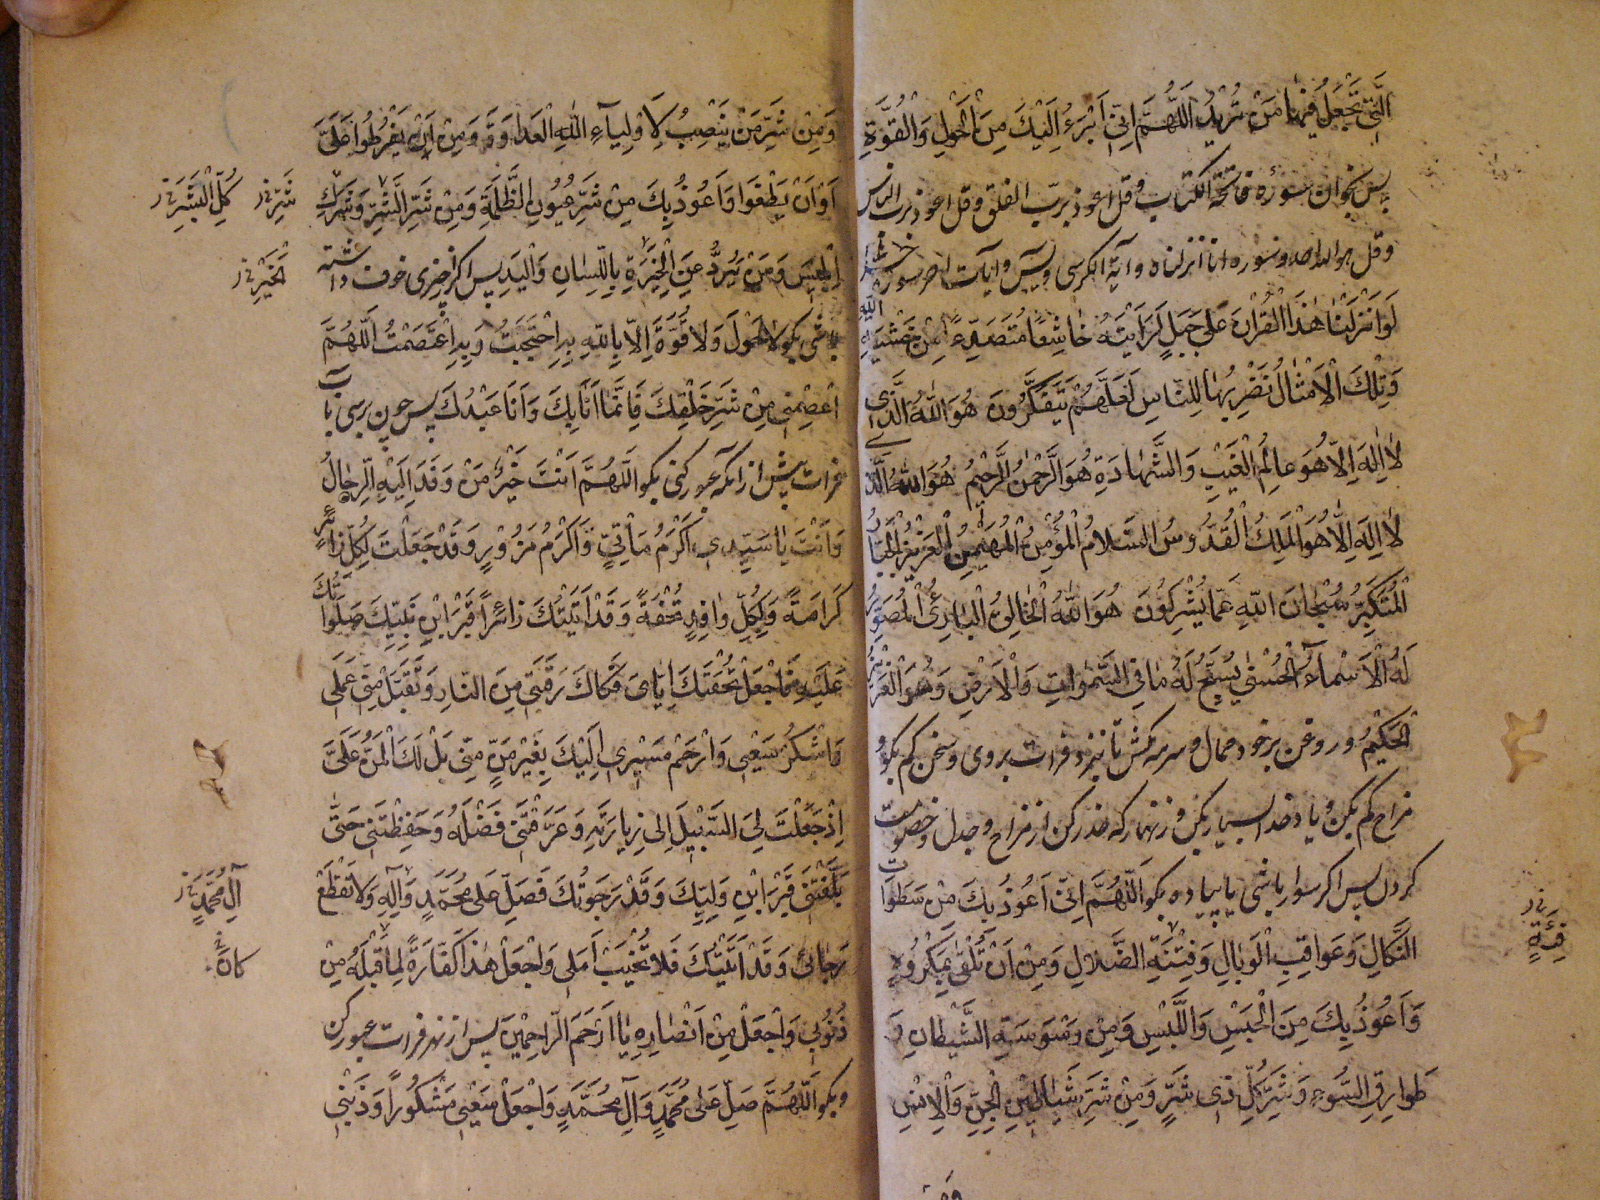 الَّتِی تَجْعَلُ فِیهَا مَنْ تُرِیدُ اَللّٰهُمَّ اِنِّی اَبْرَءُ اِلَیْكَ مِنَ الْحَوْلِ وَالْقُوَّةِ
پس بخوان سوره فاتحة الکتاب و قل اعوذ برب الفلق و قل اعوذ برب الناس
و قل هو الله احد و سوره انا انزلناه و آیة الکرسی و یس و آیات آخر سوره حشر
لَوْ اَنْزَلْنَا هٰذَا الْقُرْاٰنَ عَلٰی جَبَلٍ لَرَاَیْتَهُ خَاشِعًا مُتَصَدِّعًا مِنْ خَشْیَةِ اللّٰهِ
وَتِلْكَ الْاَمْثَالُ نَضْرِبُهَا لِلنَّاسِ لَعَلَّهُمْ یَتَفَكَّرُونَ هُوَ اللّٰهُ الَّذِی
لَا اِلٰهَ اِلَّا هُوَ عَالِمُ الْغَیْبِ وَالشَّهَادَةِ هُوَ الرَّحْمٰنُ الرَّحِیْمُ هُوَ اللّٰهُ الَّذِی
لَا اِلٰهَ اِلَّا هُوَ الْمَلِكُ الْقُدُّوسُ السَّلَامُ الْمُؤْمِنُ الْمُهَیْمِنُ الْعَزِیْزُ الْجَبَّارُ
الْمُتَكَبِّرُ سُبْحَانَ اللّٰهِ عَمَّا یُشْرِكُونَ هُوَ اللّٰهُ الْخَالِقُ الْبَارِئُ الْمُصَوِّرُ
لَهُ الْاَسْمَاءُ الْحُسْنٰی یُسَبِّحُ لَهُ مَا فِی السَّمٰوَاتِ وَالْاَرْضِ وَهُوَ الْعَزِیْزُ
الْحَكِیْمُ و روغن بر خود ممال و سرمه مکش تا بنزد فرات بروی و سخن کم بگو
مزاح کم بکن و یاد خدا بسیار بکن و زنهار که حذر کن از مزاح و جدل و خصومت
کردن پس اگر سوار باشی یا پیاده بگو اَللّٰهُمَّ اِنِّی اَعُوذُ بِكَ مِنْ سَطَوَاتِ
النَّكَالِ وَعَوَاقِبِ الْوَبَالِ وَفِتْنَةِ الضَّلَالِ وَمِنْ اَنْ تَلْقَی بِمَكْرُوهٍ
فِئَةِ
وَاَعُوذُ بِكَ مِنَ الْحَبْسِ وَاللَّبْسِ وَمِنْ وَسْوَسَةِ الشَّیْطَانِ وَ
طَوَارِقِ السُّوءِ وَشَرِّ كُلِّ ذِی شَرٍّ وَمِنْ شَرِّ شَیَاطِیْنِ الْجِنِّ وَالْاِنْسِ
وَمِنْ شَرِّ مَنْ یَنْصِبُ لِاَوْلِیَآءِ اللّٰهِ الْعَدَاوَةَ وَمِنْ اَنْ یَفْرُطُوا عَلَیَّ
اَوْ اَنْ یَطْغَوْا وَاَعُوذُ بِكَ مِنْ شَرِّ عُیُونِ الظَّلَمَةِ وَمِنْ شَرِّ الشَّرِّ وَشَرَكِ
شَرِّ
كُلِّ
اِبْلِیسَ وَمَنْ یَرُدُّ عَنِ الْخَیْرِ بِاللِّسَانِ وَالْیَدِ پس اگر چیزی خوف داشته
الْخَیْرِ
باشی بگو لَا حَوْلَ وَلَا قُوَّةَ اِلَّا بِاللّٰهِ بِهِ احْتَجَبْتُ وَبِهِ اعْتَصَمْتُ اَللّٰهُمَّ
اعْصِمْنِی مِنْ شَرِّ خَلْقِكَ فَاِنَّمَا اَنَا بِكَ وَاَنَا عَبْدُكَ پس چون برسی بآب
فرات پیش از آنکه عبور کنی بگو اَللّٰهُمَّ اَنْتَ خَیْرُ مَنْ وَفَدَ اِلَیْهِ الرِّجَالُ
وَاَنْتَ یَا سَیِّدِی اَكْرَمُ مَأْتِیٍّ وَاَكْرَمُ مَزُورٍ وَقَدْ جَعَلْتَ لِكُلِّ زَائِرٍ
كَرَامَةً وَلِكُلِّ وَافِدٍ تُحْفَةً وَقَدْ اَتَیْتُكَ زَائِرًا قَبْرَ ابْنِ نَبِیِّكَ صَلَوَاتُكَ
عَلَیْهِ فَاجْعَلْ تُحْفَتَكَ اِیَّایَ فَكَاكَ رَقَبَتِی مِنَ النَّارِ وَتَقَبَّلْ مِنِّی عَمَلِی
وَاشْكُرْ سَعْیِی وَارْحَمْ مَسِیرِی اِلَیْكَ بِغَیْرِ مَنٍّ مِنِّی بَلْ لَكَ الْمَنُّ عَلَیَّ
اِذْ جَعَلْتَ لِیَ السَّبِیْلَ اِلٰی زِیَارَتِهِ وَعَرَّفْتَنِی فَضْلَهُ وَحَفِظْتَنِی حَتّٰی
بَلَّغْتَنِی قَبْرَ ابْنِ وَلِیِّكَ وَقَدْ رَجَوْتُكَ فَصَلِّ عَلٰی مُحَمَّدٍ وَآلِهِ وَلَا تَقْطَعْ
آلِ مُحَمَّدٍ
رَجَائِی وَقَدْ اَتَیْتُكَ فَلَا تُخَیِّبْ اَمَلِی وَاجْعَلْ هٰذَا كَفَّارَةً لِمَا قَبْلَهُ مِنْ
كَانَ
ذُنُوبِی وَاجْعَلْنِی مِنْ اَنْصَارِهِ یَا اَرْحَمَ الرَّاحِمِیْنَ پس از نهر فرات عبور کن
و بگو اَللّٰهُمَّ صَلِّ عَلٰی مُحَمَّدٍ وَآلِ مُحَمَّدٍ وَاجْعَلْ سَعْیِی مَشْكُورًا وَذَنْبِی